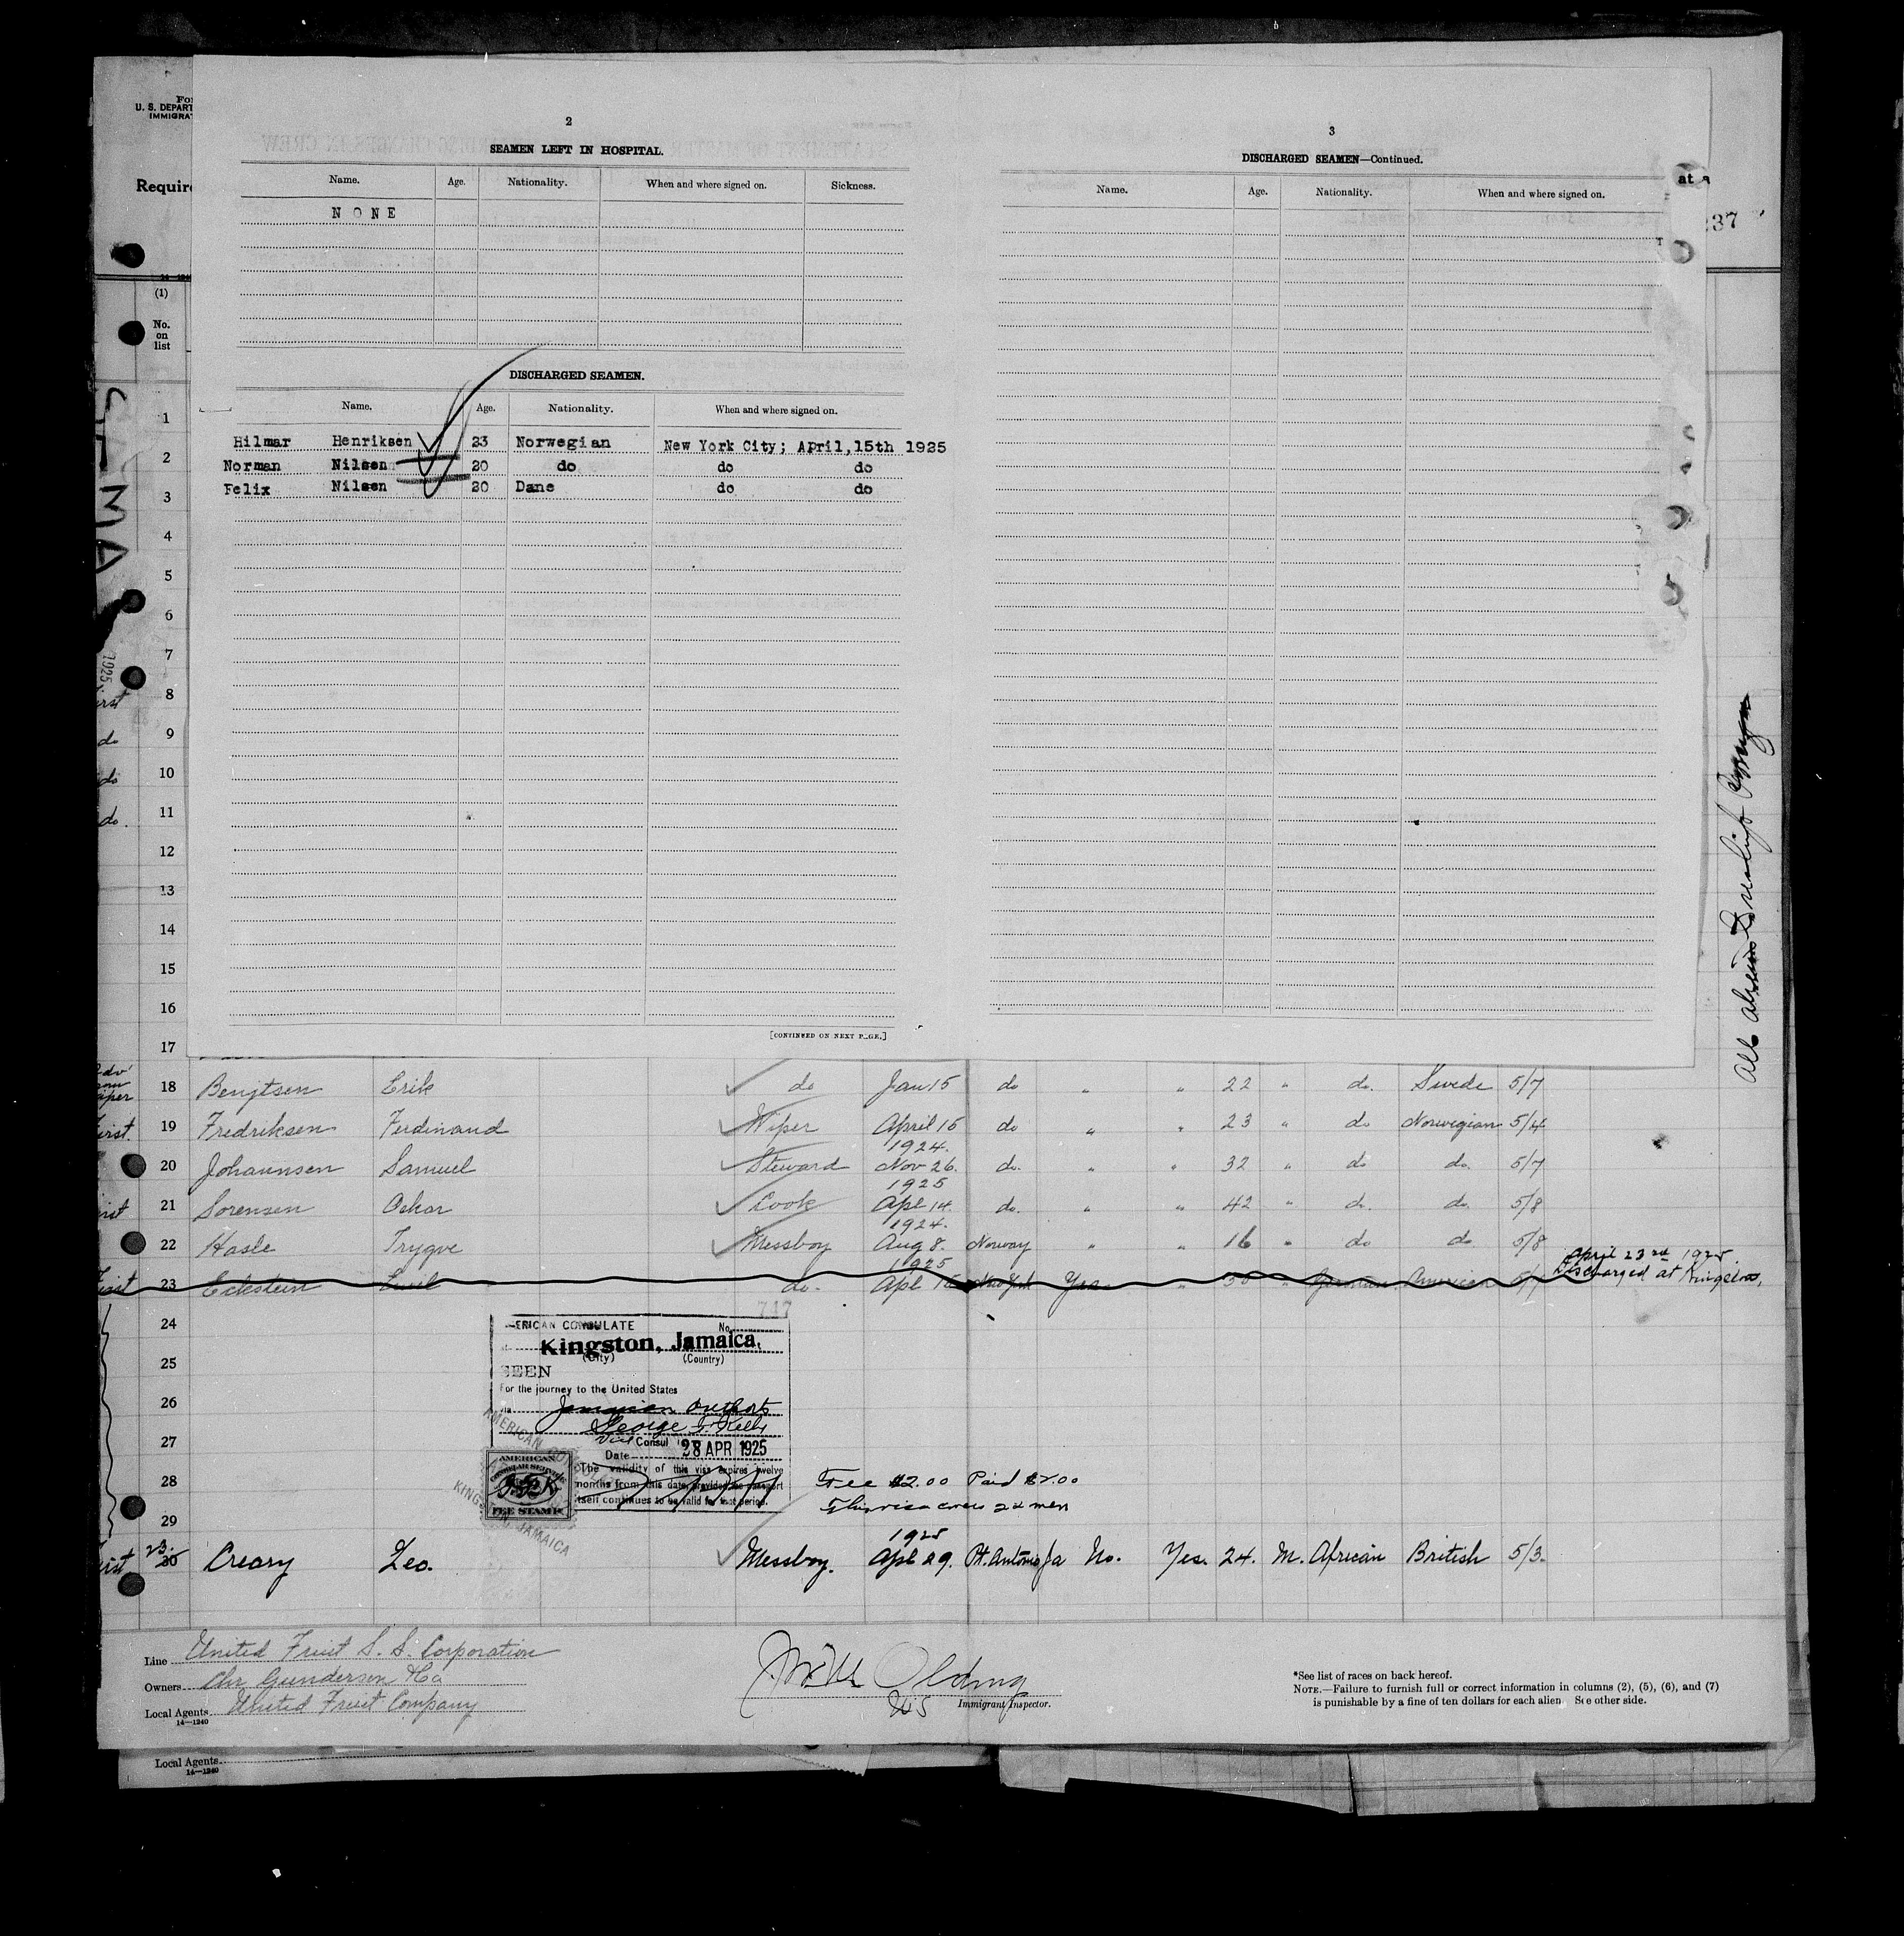 For
U. S. DEPART
IMMIGRAT
Require
at a
237
(1)
No.
on
list
2
SEAMEN LEFT IN HOSPITAL.
Name. Age. Nationality. When and where signed on. Sickness.
N O N E
DISCHARGED SEAMEN.
Name. Age. Nationality. When and where signed on.
Hilmar Henriksen 23 Norwegian New York City; April,15th 1925
Norman Nilsen 20 do do do
Felix Nilsen 20 Dane do do
[CONTINUED ON NEXT PAGE.]
3
DISCHARGED SEAMEN—Continued.
Name. Age. Nationality. When and where signed on.
1
2
3
4
5
6
7
8
9
10
11
12
13
14
15
16
17
18 Benjtsen Erik do Jan 15 do " " 22 " do. Swede 5/7
19 Fredriksen Ferdinand Wiper April 15 do " " 23 " do Norwegian 5/4
1924.
20 Johannsen Samuel Steward Nov 26. do. " " 32 " do do. 5/7
1925
21 Sorensen Oskar Cook Apl 14. do. " " 42 " do. do. 5/8
1924.
22 Hasle Trygve Messboy Aug 8. Norway " " 16 " do do 5/8
1925
April 23rd 1925
Discharged at Kingston,
23 Eckstein Emil do. Apl 15 New York Yes " " German American 5/7
24
25
26
27
28
29
747
AMERICAN CONSULATE No.
Kingston, Jamaica.
(City) (Country)
SEEN
For the journey to the United States
Jamaican outports
George
Vice Consul
Date 28 APR 1925
The validity of this visa expires twelve
months from this date, provided the passport
itself continues to be valid for that period.
AMERICAN
CONSULAR SERVICE
FEE STAMP
KINGSTON JAMAICA
Fee $2.00 Paid $2.00
1925
23. 30 Creary Leo. Messboy. Apl 29. Pt. Antonio Ja No. Yes. 24. M. African British 5/3.
Line United Fruit S. S. Corporation
Owners Chr Gundersen & Co
Local Agents United Fruit Company
14—1240
Immigrant Inspector.
*See list of races on back hereof.
NOTE.—Failure to furnish full or correct information in columns (2), (5), (6), and (7)
is punishable by a fine of ten dollars for each alien. See other side.
Local Agents
14—1240